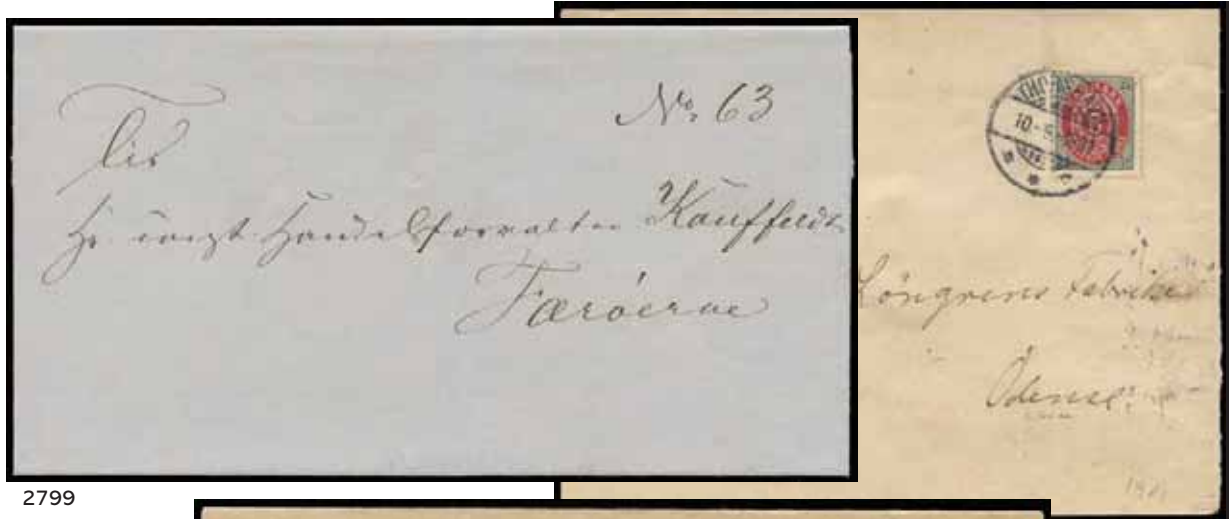 No. 63
Til
Hr. const. Handelsforvalter Kauffeldt
Færöerne
2799
THORSH
10-
Löngrens Fabrike
Odense